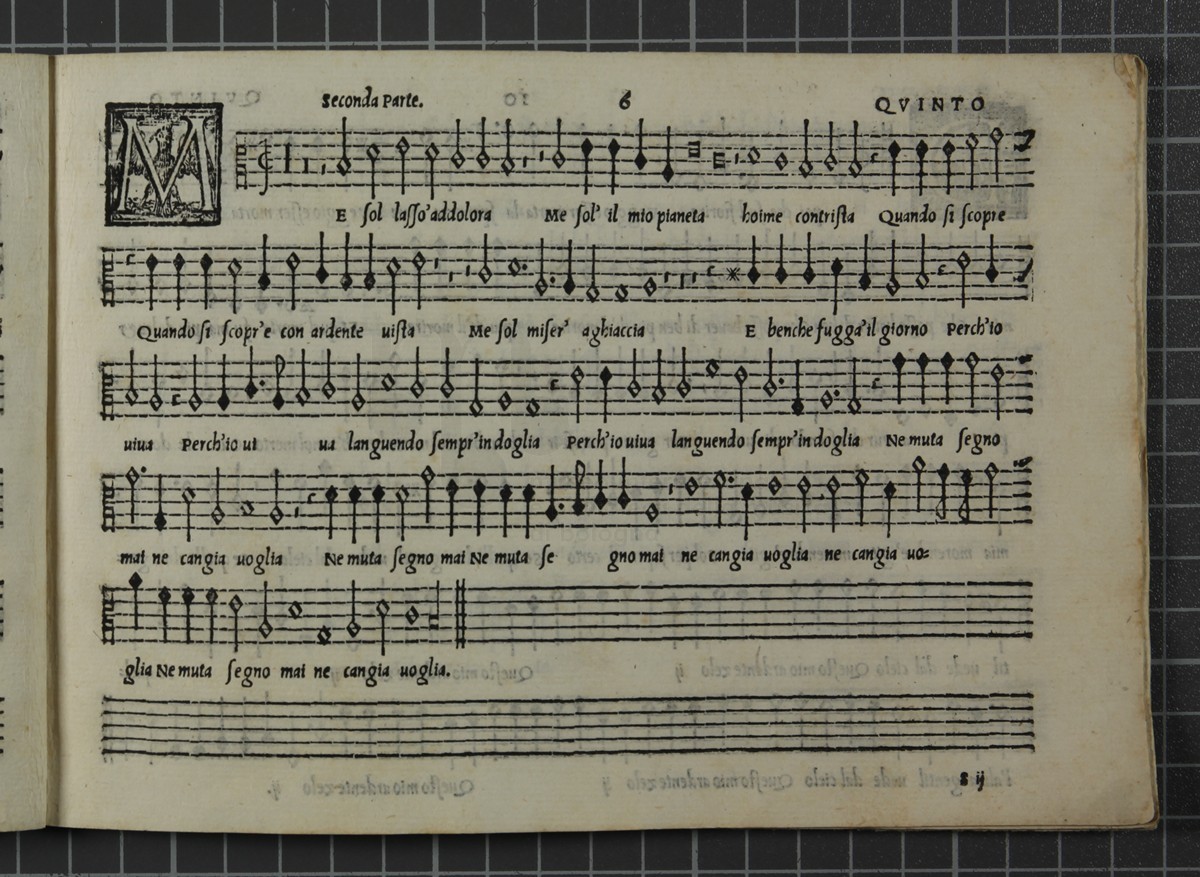 Seconda Parte. 6 QVINTO
M
E sol lasso'addolora Me sol' il mio pianeta hoime contrista Quando si scopre
Quando si scopr'e con ardente uista Me sol miser' aghiaccia E benche fugga'il giorno Perch'io
uiua Perch'io ui ua languendo sempr'in doglia Perch'io uiua languendo sempr'in doglia Ne muta segno
mai ne cangia uoglia Ne muta segno mai Ne muta se gno mai ne cangia uoglia ne cangia uo=
glia Ne muta segno mai ne cangia uoglia.
S ij